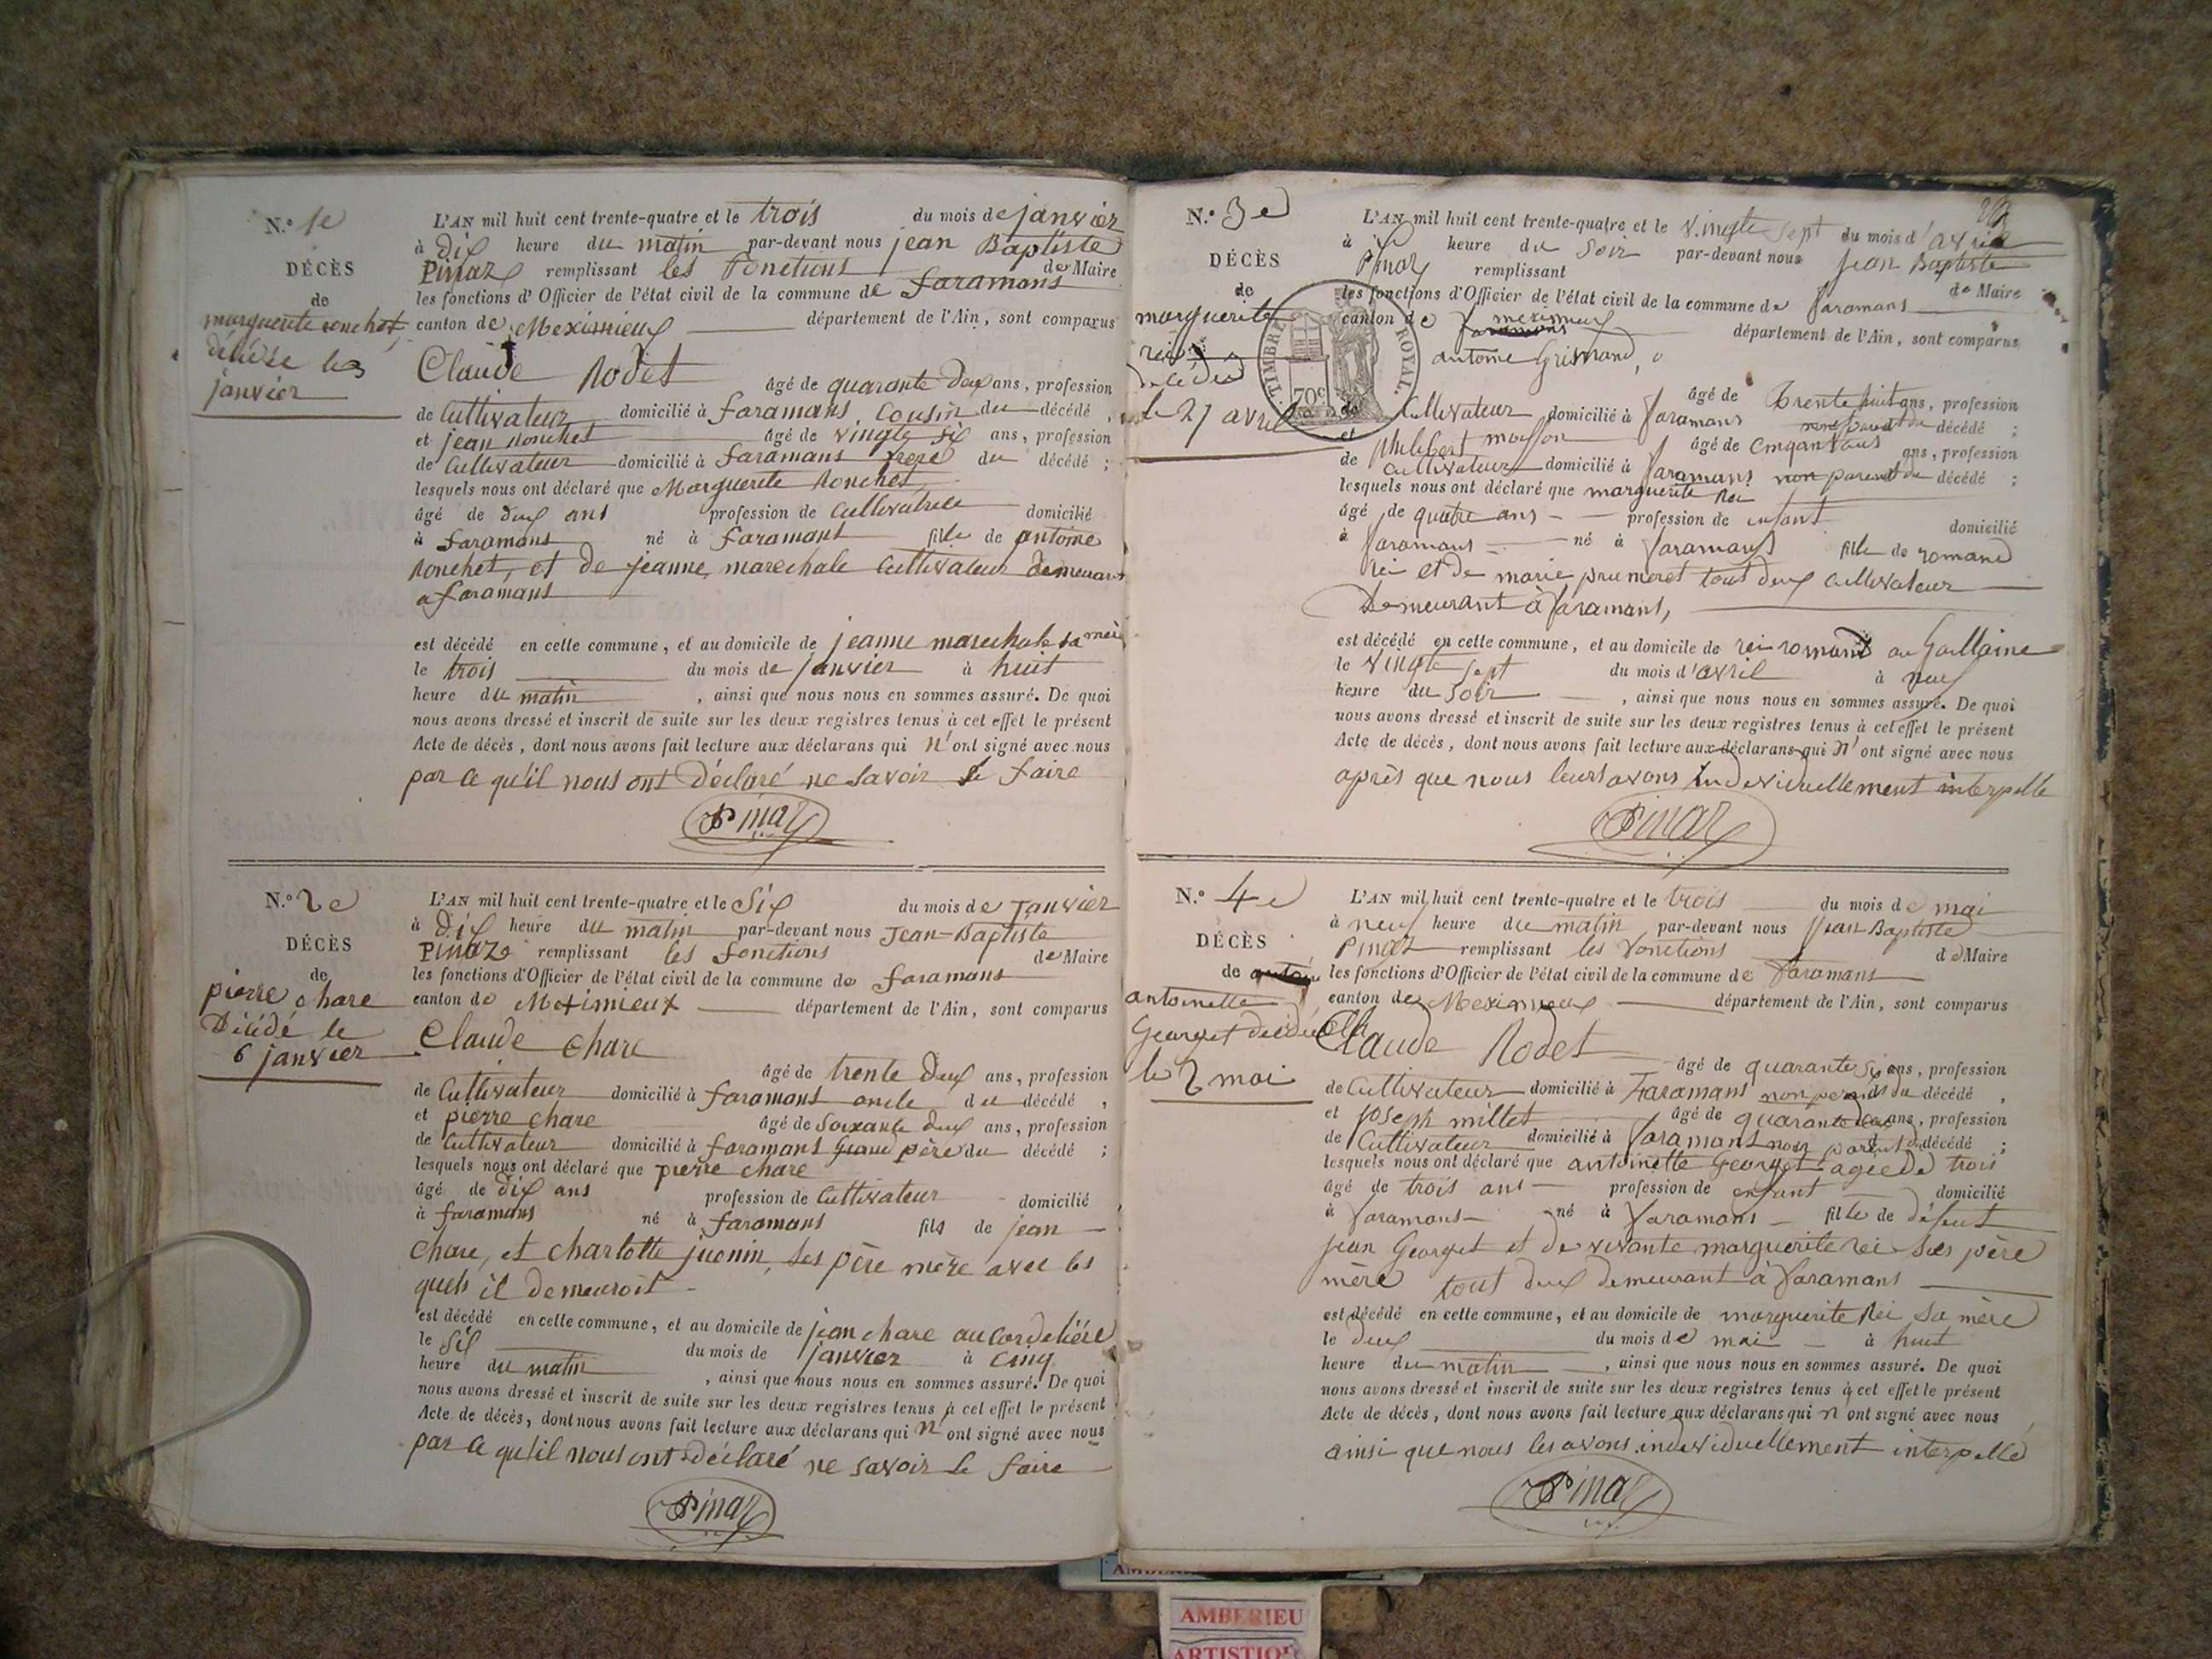 N.º 1e
DÉCÈS
de
marguerite ronchet
décédée le 3
janvier
L'AN mil huit cent trente-quatre et le trois du mois de janvier
à dix heure du matin par-devant nous jean Baptiste
PINAZ remplissant les fonctions de Maire
les fonctions d'Officier de l'état civil de la commune de faramans
canton de Meximieux département de l'Ain, sont comparus
Claude Rodet
âgé de quarante deux ans, profession
de Cultivateur domicilié à faramans Cousin du décédé,
et jean Ronchet âgé de vingte six ans, profession
de Cultivateur domicilié à faramans frere du décédé;
lesquels nous ont déclaré que Marguerite Ronchet
âgé de deux ans profession de Cultivatrice domicilié
à faramans né à faramans fille de antoine
Ronchet, et de jeanne marechale Cultivateur demeurant
a faramans
est décédé en cette commune, et au domicile de jeanne marechale sa mere
le trois du mois de janvier à huit
heure du matin, ainsi que nous nous en sommes assuré. De quoi
nous avons dressé et inscrit de suite sur les deux registres tenus à cet effet le présent
Acte de décès, dont nous avons fait lecture aux déclarans qui n'ont signé avec nous
par ce qu'il nous ont Déclaré ne savoir le faire
Pinaz
N.º 2e
DÉCÈS
de
pierre chare
Décédé le
6 janvier
L'AN mil huit cent trente-quatre et le Six du mois de Janvier
à Dix heure du matin par-devant nous Jean-Baptiste
PINAZ remplissant les fonctions de Maire
les fonctions d'Officier de l'état civil de la commune de faramans
canton de Meximieux département de l'Ain, sont comparus
Claude chare
âgé de trente deux ans, profession
de Cultivateur domicilié à faramans oncle du décédé,
et pierre chare âgé de soixante deux ans, profession
de Cultivateur domicilié à faramans Grand père du décédé;
lesquels nous ont déclaré que pierre chare
âgé de dix ans profession de Cultivateur domicilié
à faramans né à faramans fils de jean
chare, et charlotte juenin, ses père mère avec les
quels il demeuroit
est décédé en cette commune, et au domicile de jean chare au Cordeliére
le Six du mois de janvier à cinq
heure du matin, ainsi que nous nous en sommes assuré. De quoi
nous avons dressé et inscrit de suite sur les deux registres tenus à cet effet le présent
Acte de décès, dont nous avons fait lecture aux déclarans qui n'ont signé avec nous
par ce qu'il nous ont déclaré ne savoir le faire
Pinaz
N.º 3e
DÉCÈS
de
marguerite
rei
décédée
le 27 avril
TIMBRE ROYAL
70c
L'AN mil huit cent trente-quatre et le vingte sept du mois d'avril
à heure du soir par-devant nous Jean Baptiste
Pinaz remplissant de Maire
les fonctions d'Officier de l'état civil de la commune de faramans
canton de meximieux département de l'Ain, sont comparus
antoine Grismand,
âgé de trente huit ans, profession
de Cultivateur domicilié à faramans non parent du décédé;
et Philibert moisson âgé de cinquante ans, profession
de Cultivateur domicilié à faramans non parent du décédé;
lesquels nous ont déclaré que marguerite Rei
âgé de quatre ans profession de enfant domicilié
à faramans né à faramans fille de romand
rei et de marie prumeret tout deux cultivateur
Demeurant à faramans,
est décédé en cette commune, et au domicile de rei romand au Gaillaine
le vingte sept du mois d'avril à neuf
heure du soir, ainsi que nous nous en sommes assuré. De quoi
nous avons dressé et inscrit de suite sur les deux registres tenus à cet effet le présent
Acte de décès, dont nous avons fait lecture aux déclarans qui n'ont signé avec nous
après que nous leurs avons individuellement interpellé
Pinaz
N.º 4e
DÉCÈS
de
antoinette
Georget décédée
le 2 mai
L'AN mil huit cent trente-quatre et le trois du mois de mai
à neuf heure du matin par-devant nous Jean Baptiste
Pinaz remplissant les fonctions de Maire
les fonctions d'Officier de l'état civil de la commune de faramans
canton de Meximieux département de l'Ain, sont comparus
Claude Rodet
âgé de quarante six ans, profession
de Cultivateur domicilié à Faramans non parent du décédé,
et joseph millet âgé de quarante deux ans, profession
de Cultivateur domicilié à faramans non parent du décédé;
lesquels nous ont déclaré que antoinette Georget agée de trois
âgé de trois ans profession de enfant domicilié
à faramans né à faramans fille de défunt
jean Georget et de vivante marguerite rei ses père
mère tout deux demeurant à faramans
est décédé en cette commune, et au domicile de marguerite Rei sa mère
le deux du mois de mai à huit
heure du matin, ainsi que nous nous en sommes assuré. De quoi
nous avons dressé et inscrit de suite sur les deux registres tenus à cet effet le présent
Acte de décès, dont nous avons fait lecture aux déclarans qui n'ont signé avec nous
ainsi que nous les avons individuellement interpellé
Pinaz
AMBERIEU
ARTISTIQUE